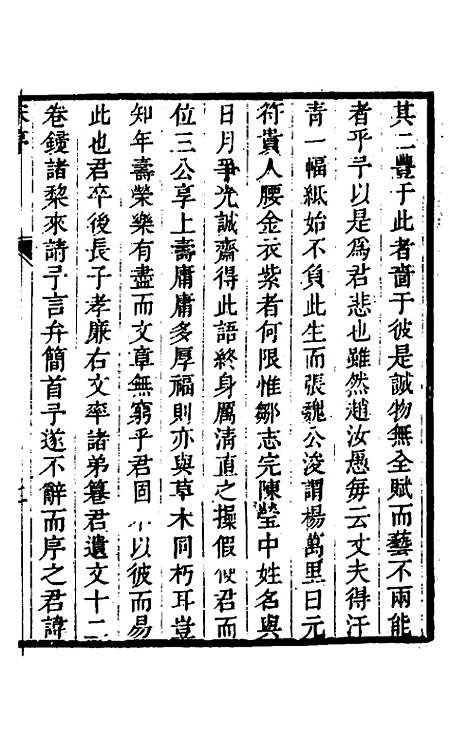 其二豐于此者嗇于彼是誠物無全賦而藝不兩能
者乎予以是爲君悲也雖然趙汝愚每云丈夫得汗
青一幅紙始不負此生而張魏公浚謂楊萬里曰元
符貴人腰金衣紫者何限惟鄒志完陳瑩中姓名與
日月爭光誠齋得此語終身厲清直之操假使君而
位三公享上壽庸庸多厚福則亦與草木同朽耳豈
知年壽榮樂有盡而文章無窮乎君固不以彼而易
此也君卒後長子孝廉右文率諸弟纂君遺文十二
卷鋟諸棃來請予言弁簡首予遂不辭而序之君諱